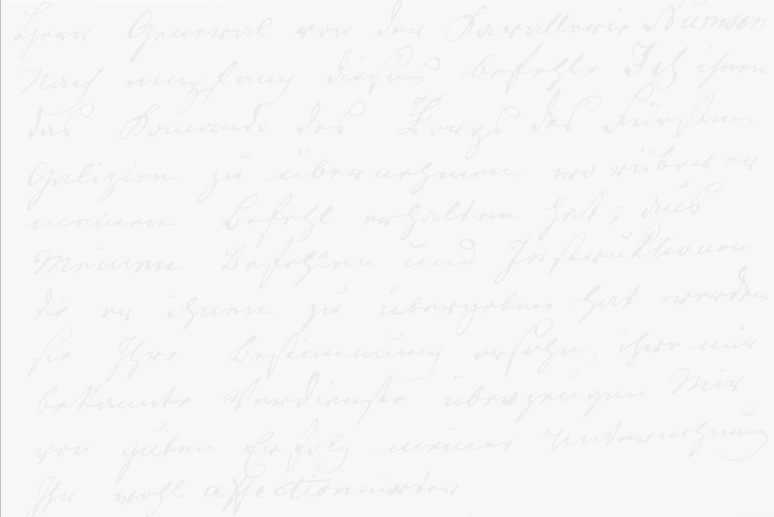 Herr General von der Kavallerie Numsen
Nach empfang dieses befehls Ich ihnen
das Komando des Korps des Fürsten
Galizien zu übernehmen worüber er
meinen Befehl erhalten hat; aus
Meinen Befehlen und Instruktionen
die er ihnen zu übergeben hat werden
sie Ihre Bestimmung ersehn, ihre mir
bekante Verdienste überzeugen Mir
von guten Erfolg meiner Unternehmung
Ihr wohl affectionnirter